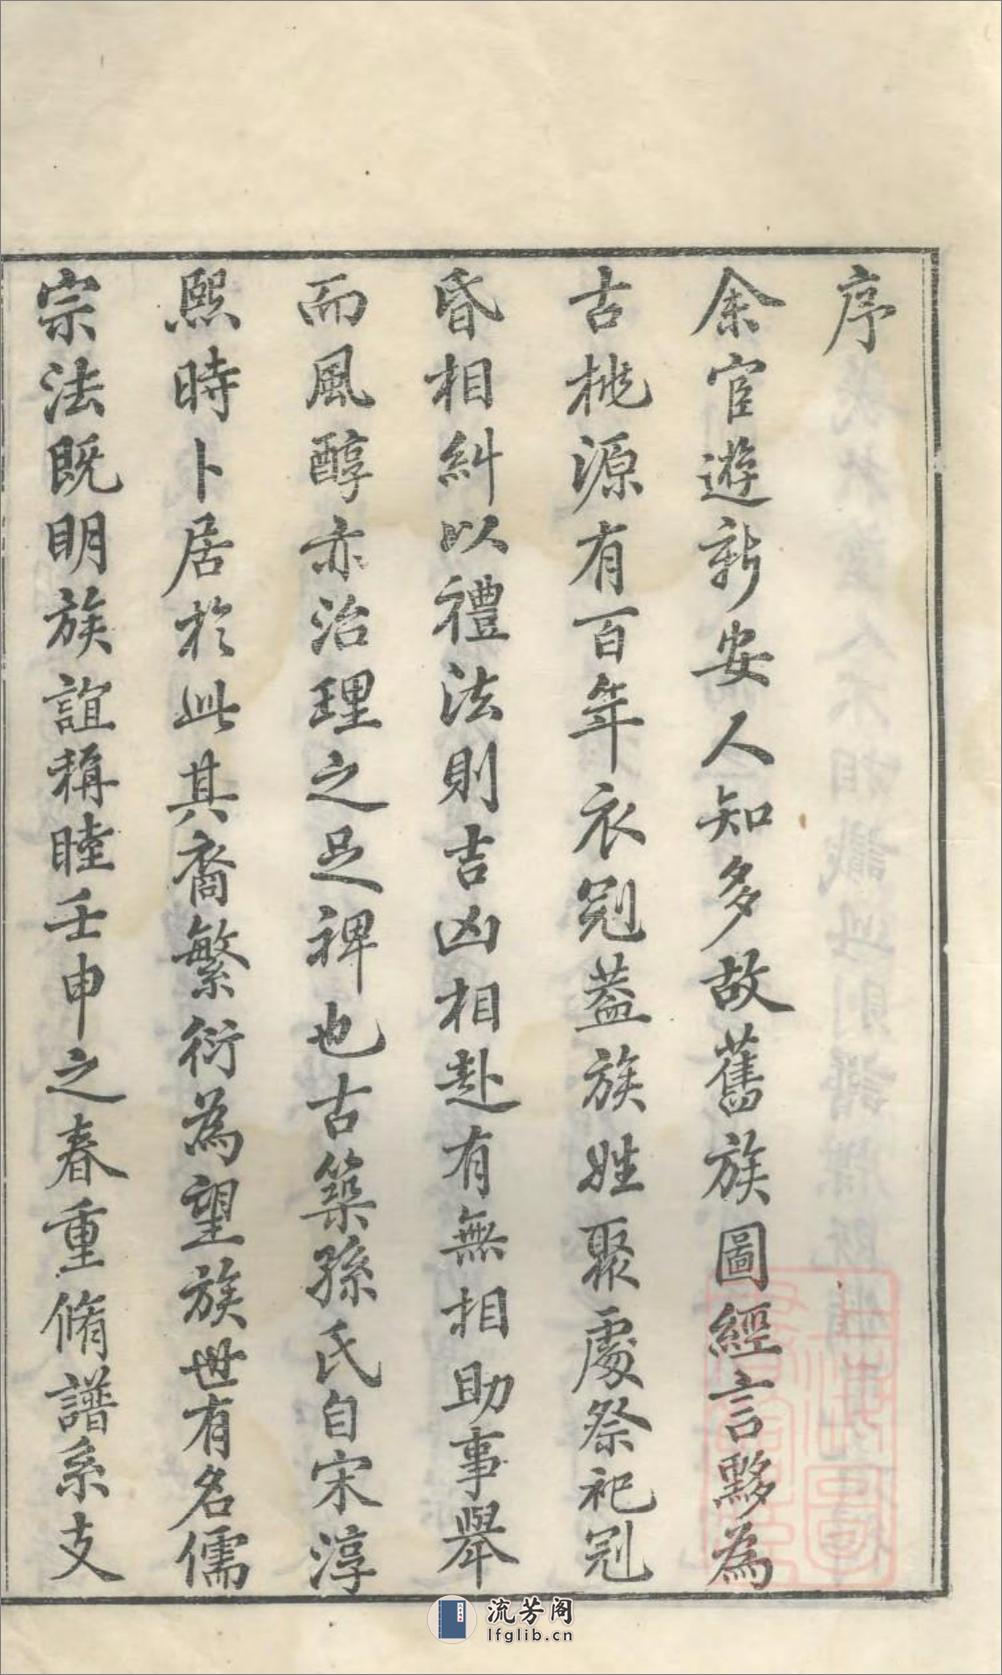 序
余官遊新安人知多故舊族圖經言黟為
古桃源有百年衣冠蓋族姓聚處祭祀冠
昏相糾以禮法則吉凶相赴有無相助事舉
而風醇亦治理之足裨也古築孫氏自宋淳
熙時卜居於此其裔繁衍為望族世有名儒
宗法既明族誼稱睦壬申之春重脩譜系支
流芳阁
lfglib.cn